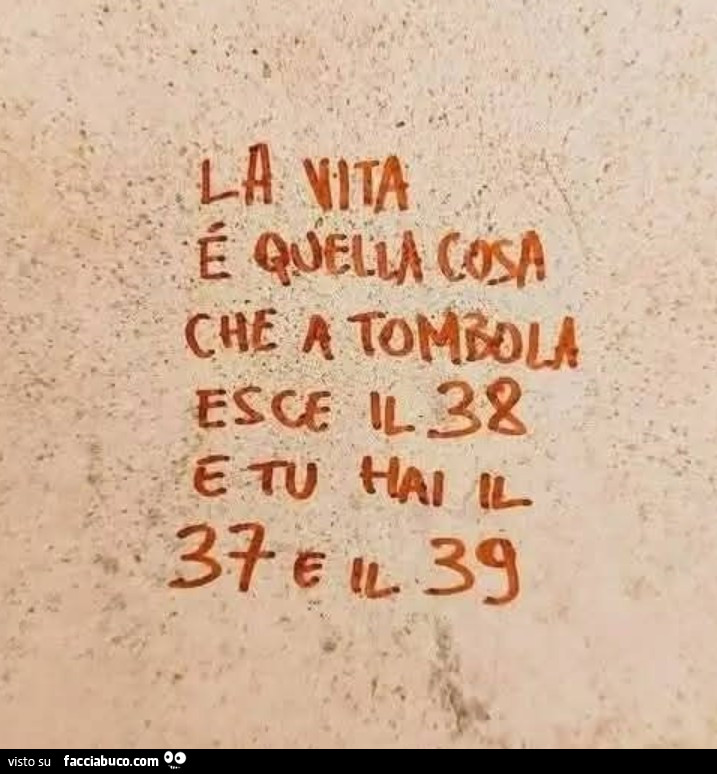 LA VITA
É QUELLA COSA
CHE A TOMBOLA
ESCE IL 38
E TU HAI IL
37 E IL 39
visto su facciabuco.com